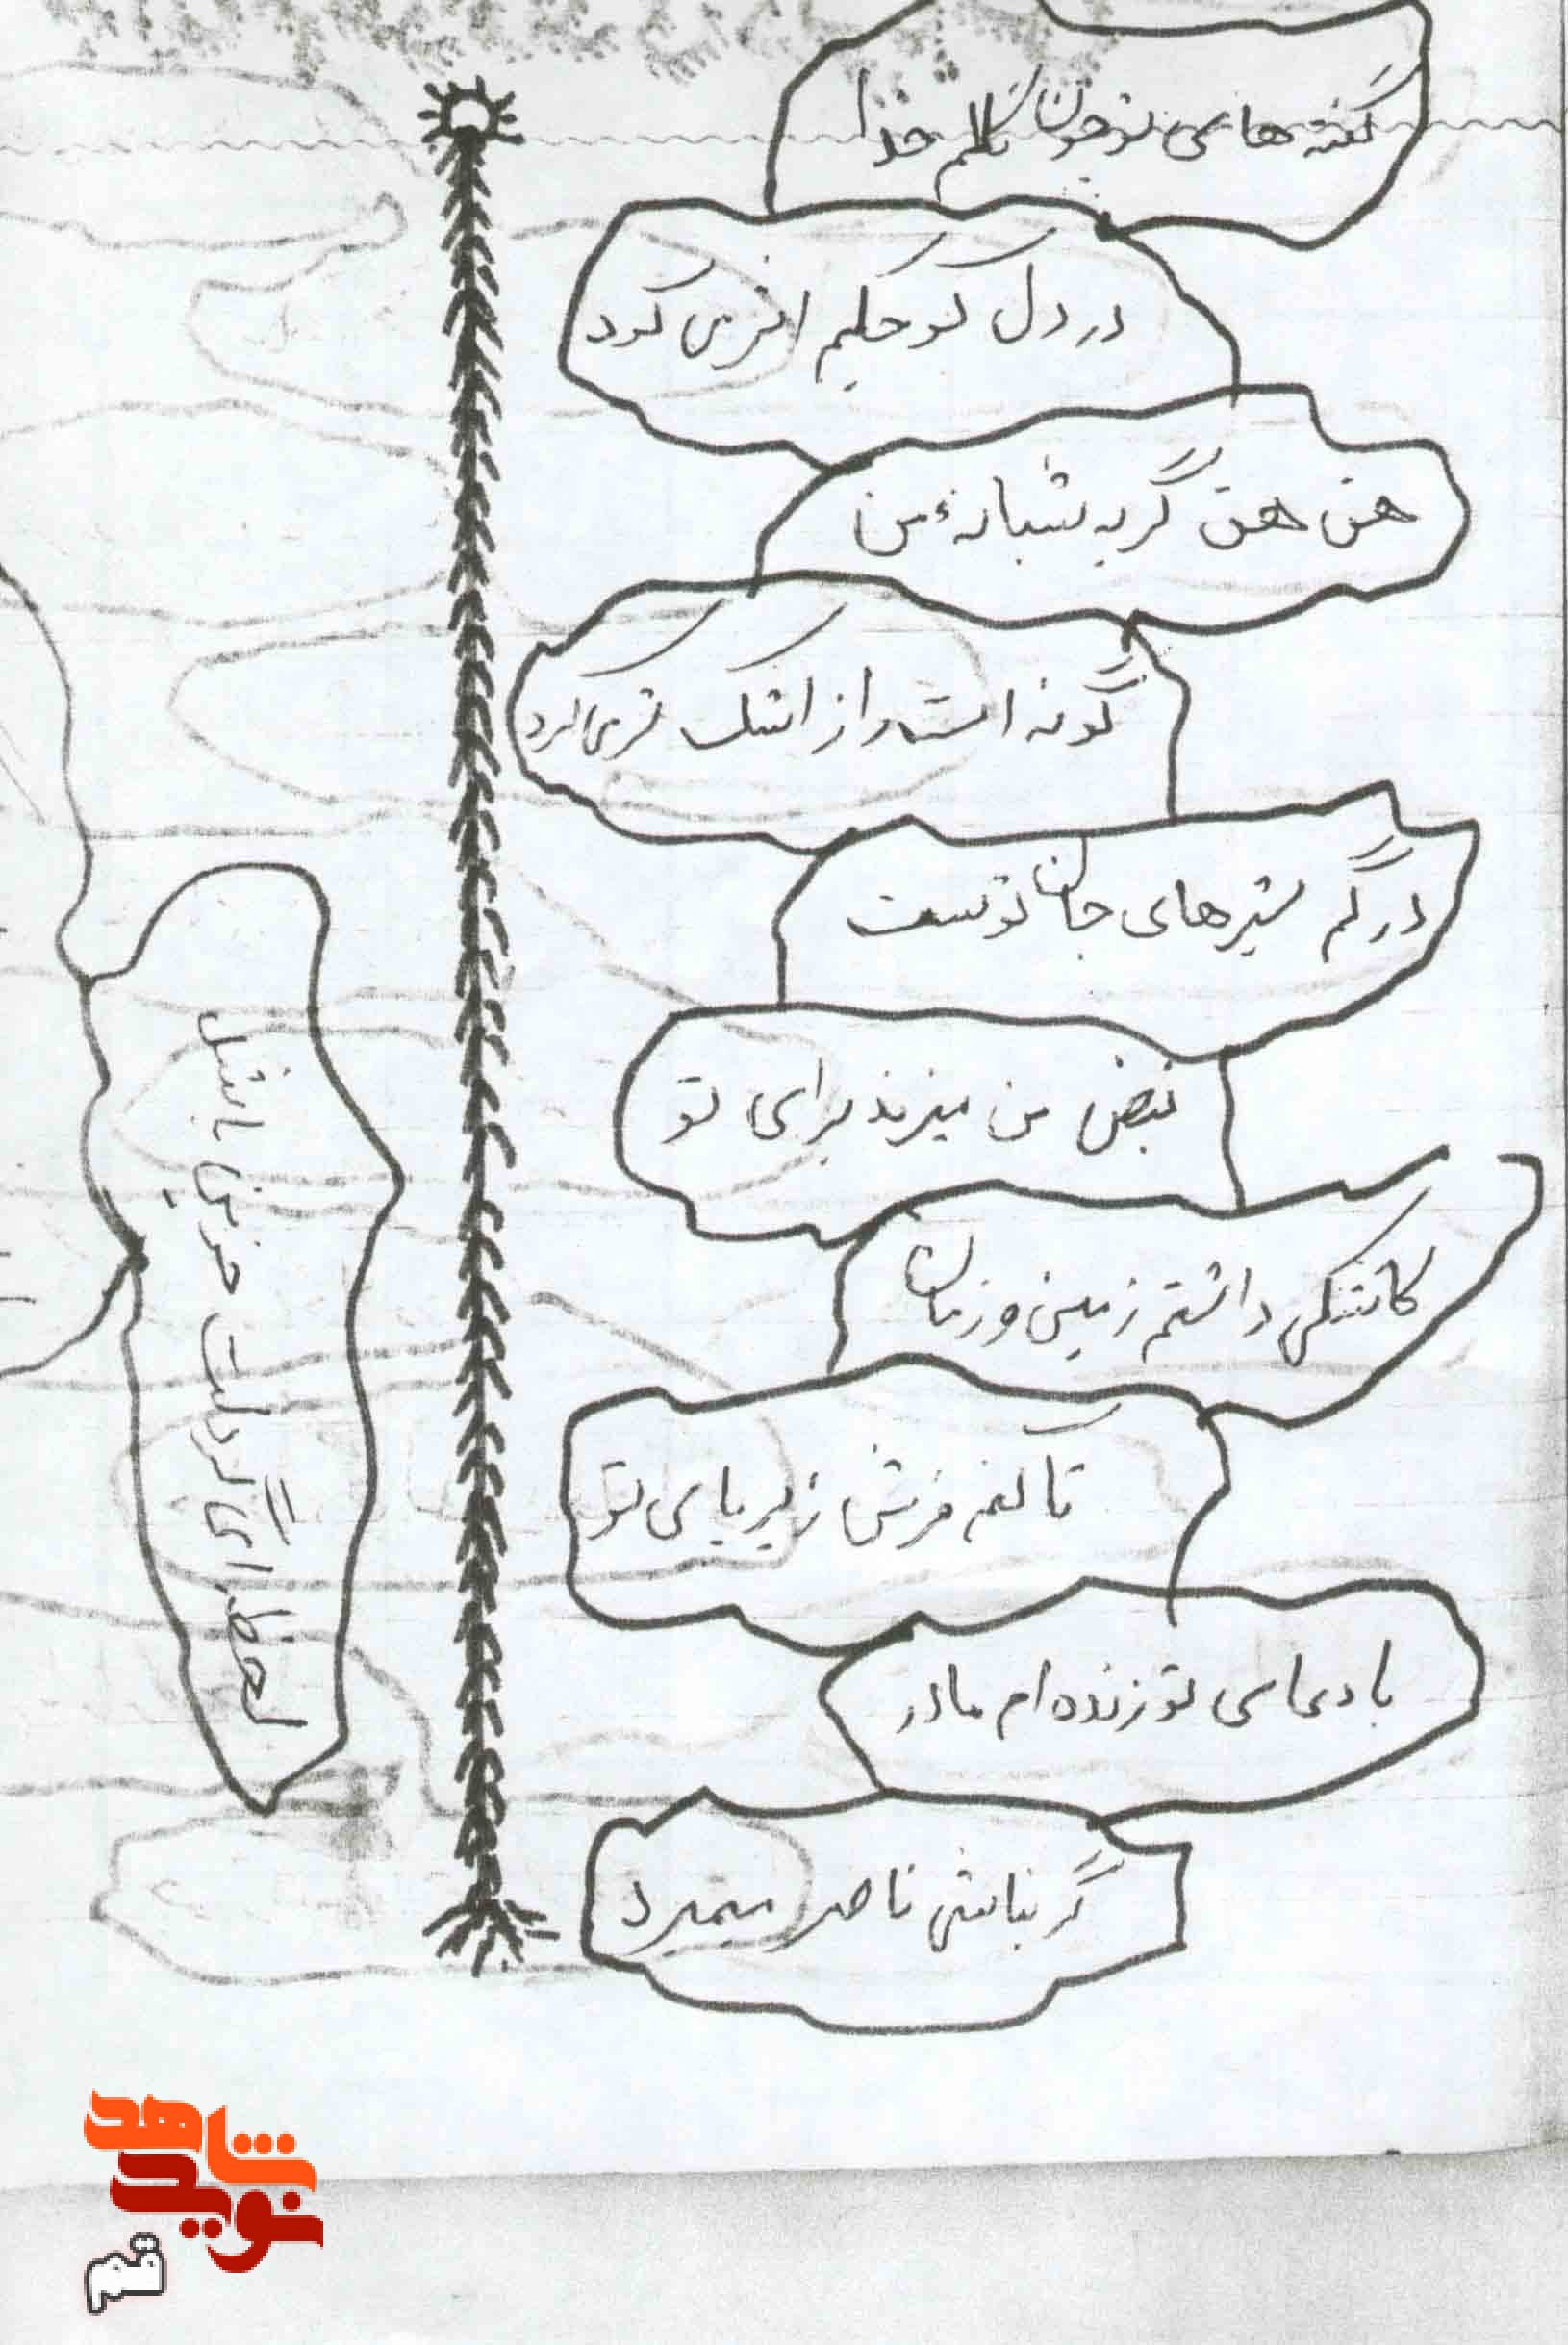 گفته های تو چون کلام خدا
در دل کوچکم اثر می کرد
هق هق گریه شبانهٔ من
گونه ات را از اشک تر می کرد
در رگم شیرهای جان تو است
نبض من میزند برای تو
کاشکی داشتم زمین و زمان
تا کنم فرش زیر پای تو
با دعای تو زنده ام مادر
گر نباشی ناصر میمیرد
لحظه ای گر دلت حزین باشد
نوید شاهد
قم